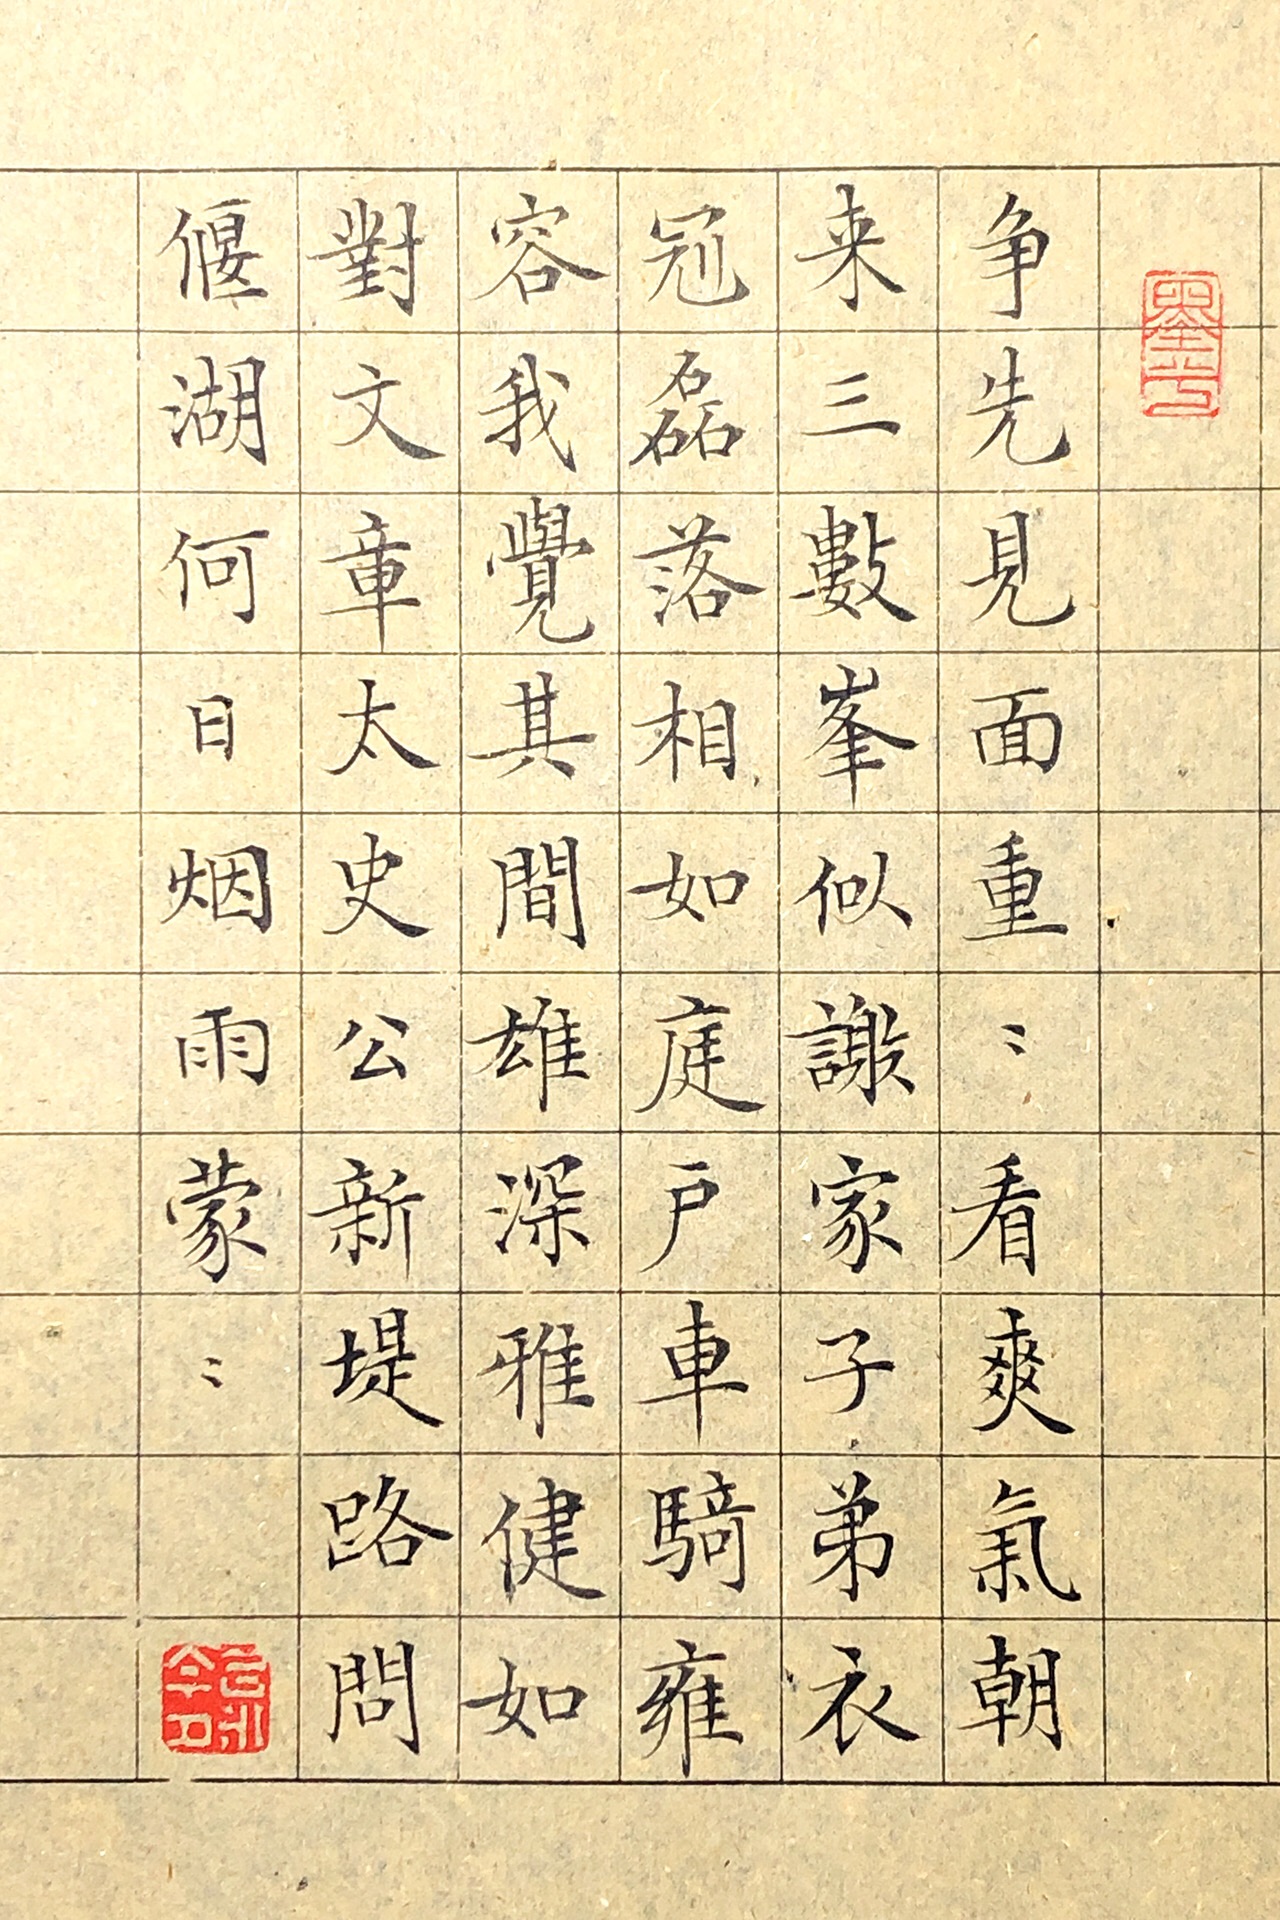 争先見面重〻看爽氣朝
来三數峯似謝家子弟衣
冠磊落相如庭户車騎雍
容我覺其間雄深雅健如
對文章太史公新堤路問
偃湖何日烟雨蒙〻